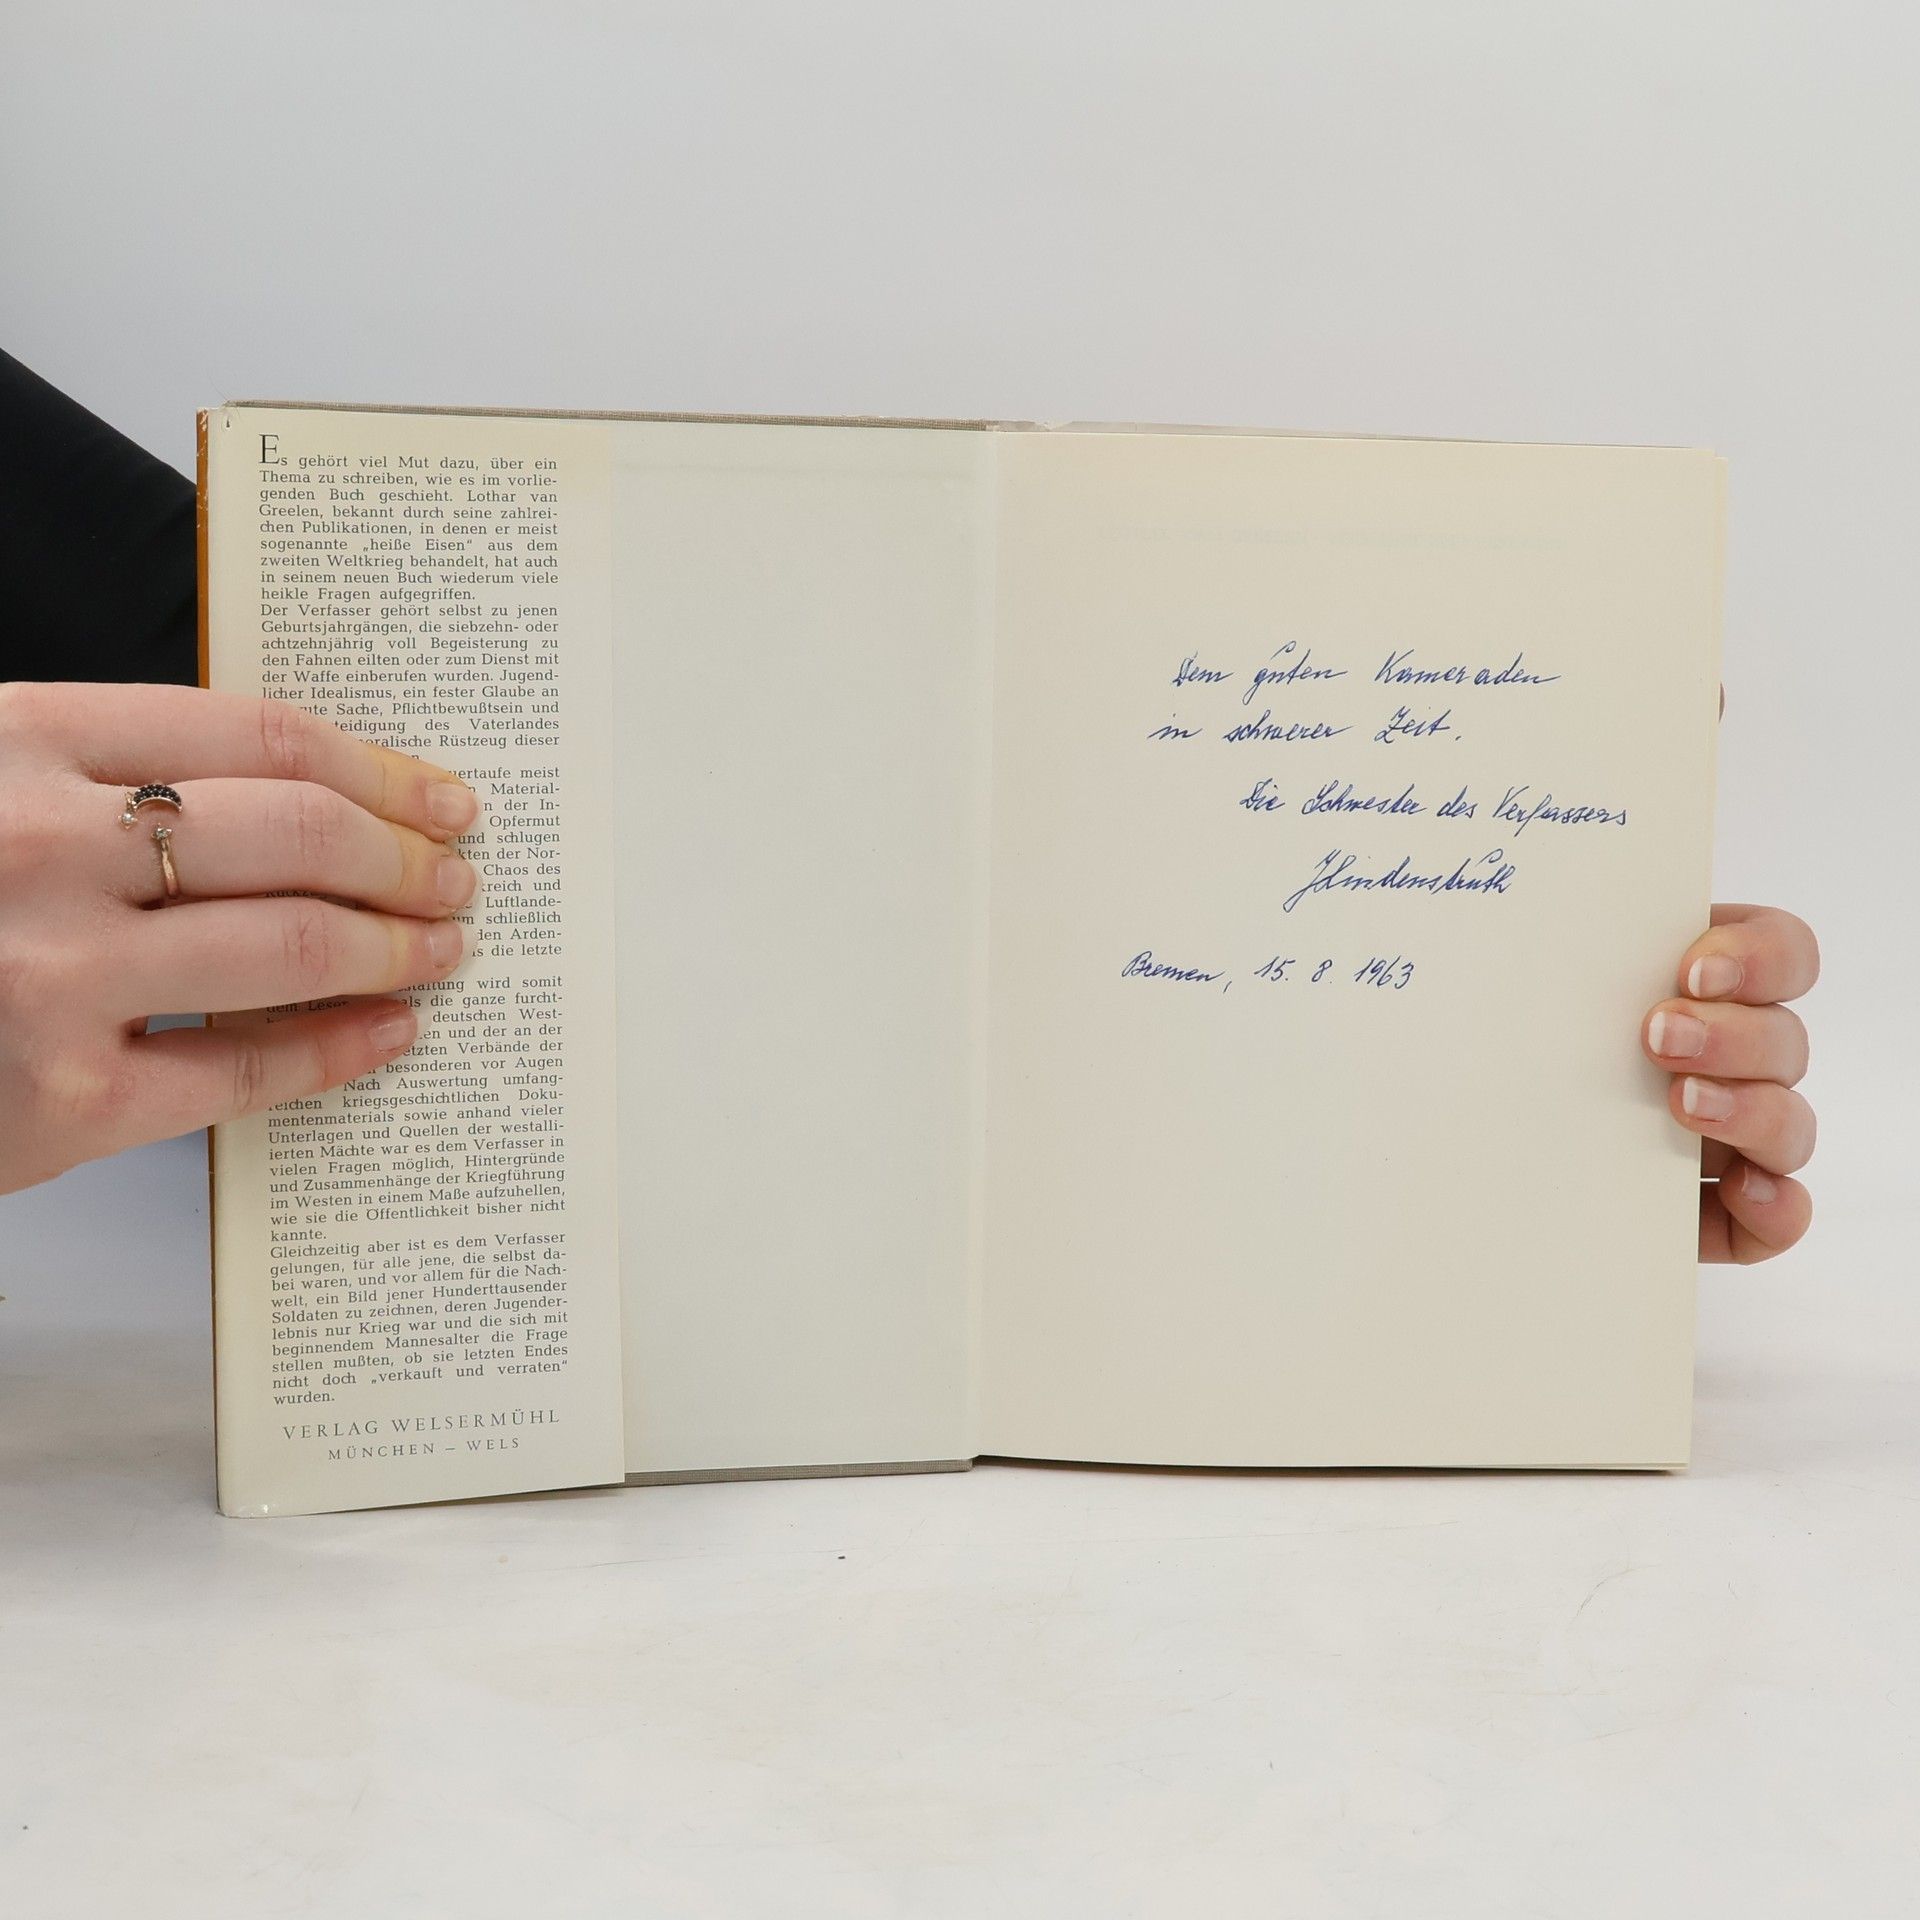 Es gehört viel Mut dazu, über ein
Thema zu schreiben, wie es im vorlie-
genden Buch geschieht. Lothar van
Greelen, bekannt durch seine zahlrei-
chen Publikationen, in denen er meist
sogenannte „heiße Eisen“ aus dem
zweiten Weltkrieg behandelt, hat auch
in seinem neuen Buch wiederum viele
heikle Fragen aufgegriffen.
Der Verfasser gehört selbst zu jenen
Geburtsjahrgängen, die siebzehn- oder
achtzehnjährig voll Begeisterung zu
den Fahnen eilten oder zum Dienst mit
der Waffe einberufen wurden. Jugend-
licher Idealismus, ein fester Glaube an
Sache, Pflichtbewußtsein und
des Vaterlandes
Rüstzeug dieser
meist
Material-
der In-
Opfermut
und schlugen
der Nor-
Chaos des
und
Luftlande-
schließlich
den Arden-
die letzte
wird somit
dem Leser als die ganze furcht-
deutschen West-
und der an der
Verbände der
besonderen vor Augen
Nach Auswertung umfang-
reichen kriegsgeschichtlichen Doku-
mentenmaterials sowie anhand vieler
Unterlagen und Quellen der westalli-
ierten Mächte war es dem Verfasser in
vielen Fragen möglich, Hintergründe
und Zusammenhänge der Kriegführung
im Westen in einem Maße aufzuhellen,
wie sie die Öffentlichkeit bisher nicht
kannte.
Gleichzeitig aber ist es dem Verfasser
gelungen, für alle jene, die selbst da-
bei waren, und vor allem für die Nach-
welt, ein Bild jener Hunderttausender
Soldaten zu zeichnen, deren Jugender-
lebnis nur Krieg war und die sich mit
beginnendem Mannesalter die Frage
stellen mußten, ob sie letzten Endes
nicht doch „verkauft und verraten“
wurden.
VERLAG WELSERMÜHL
MÜNCHEN – WELS
Dem guten Kameraden
in schwerer Zeit.
Die Schwester des Verfassers
Bremen, 15. 8. 1963